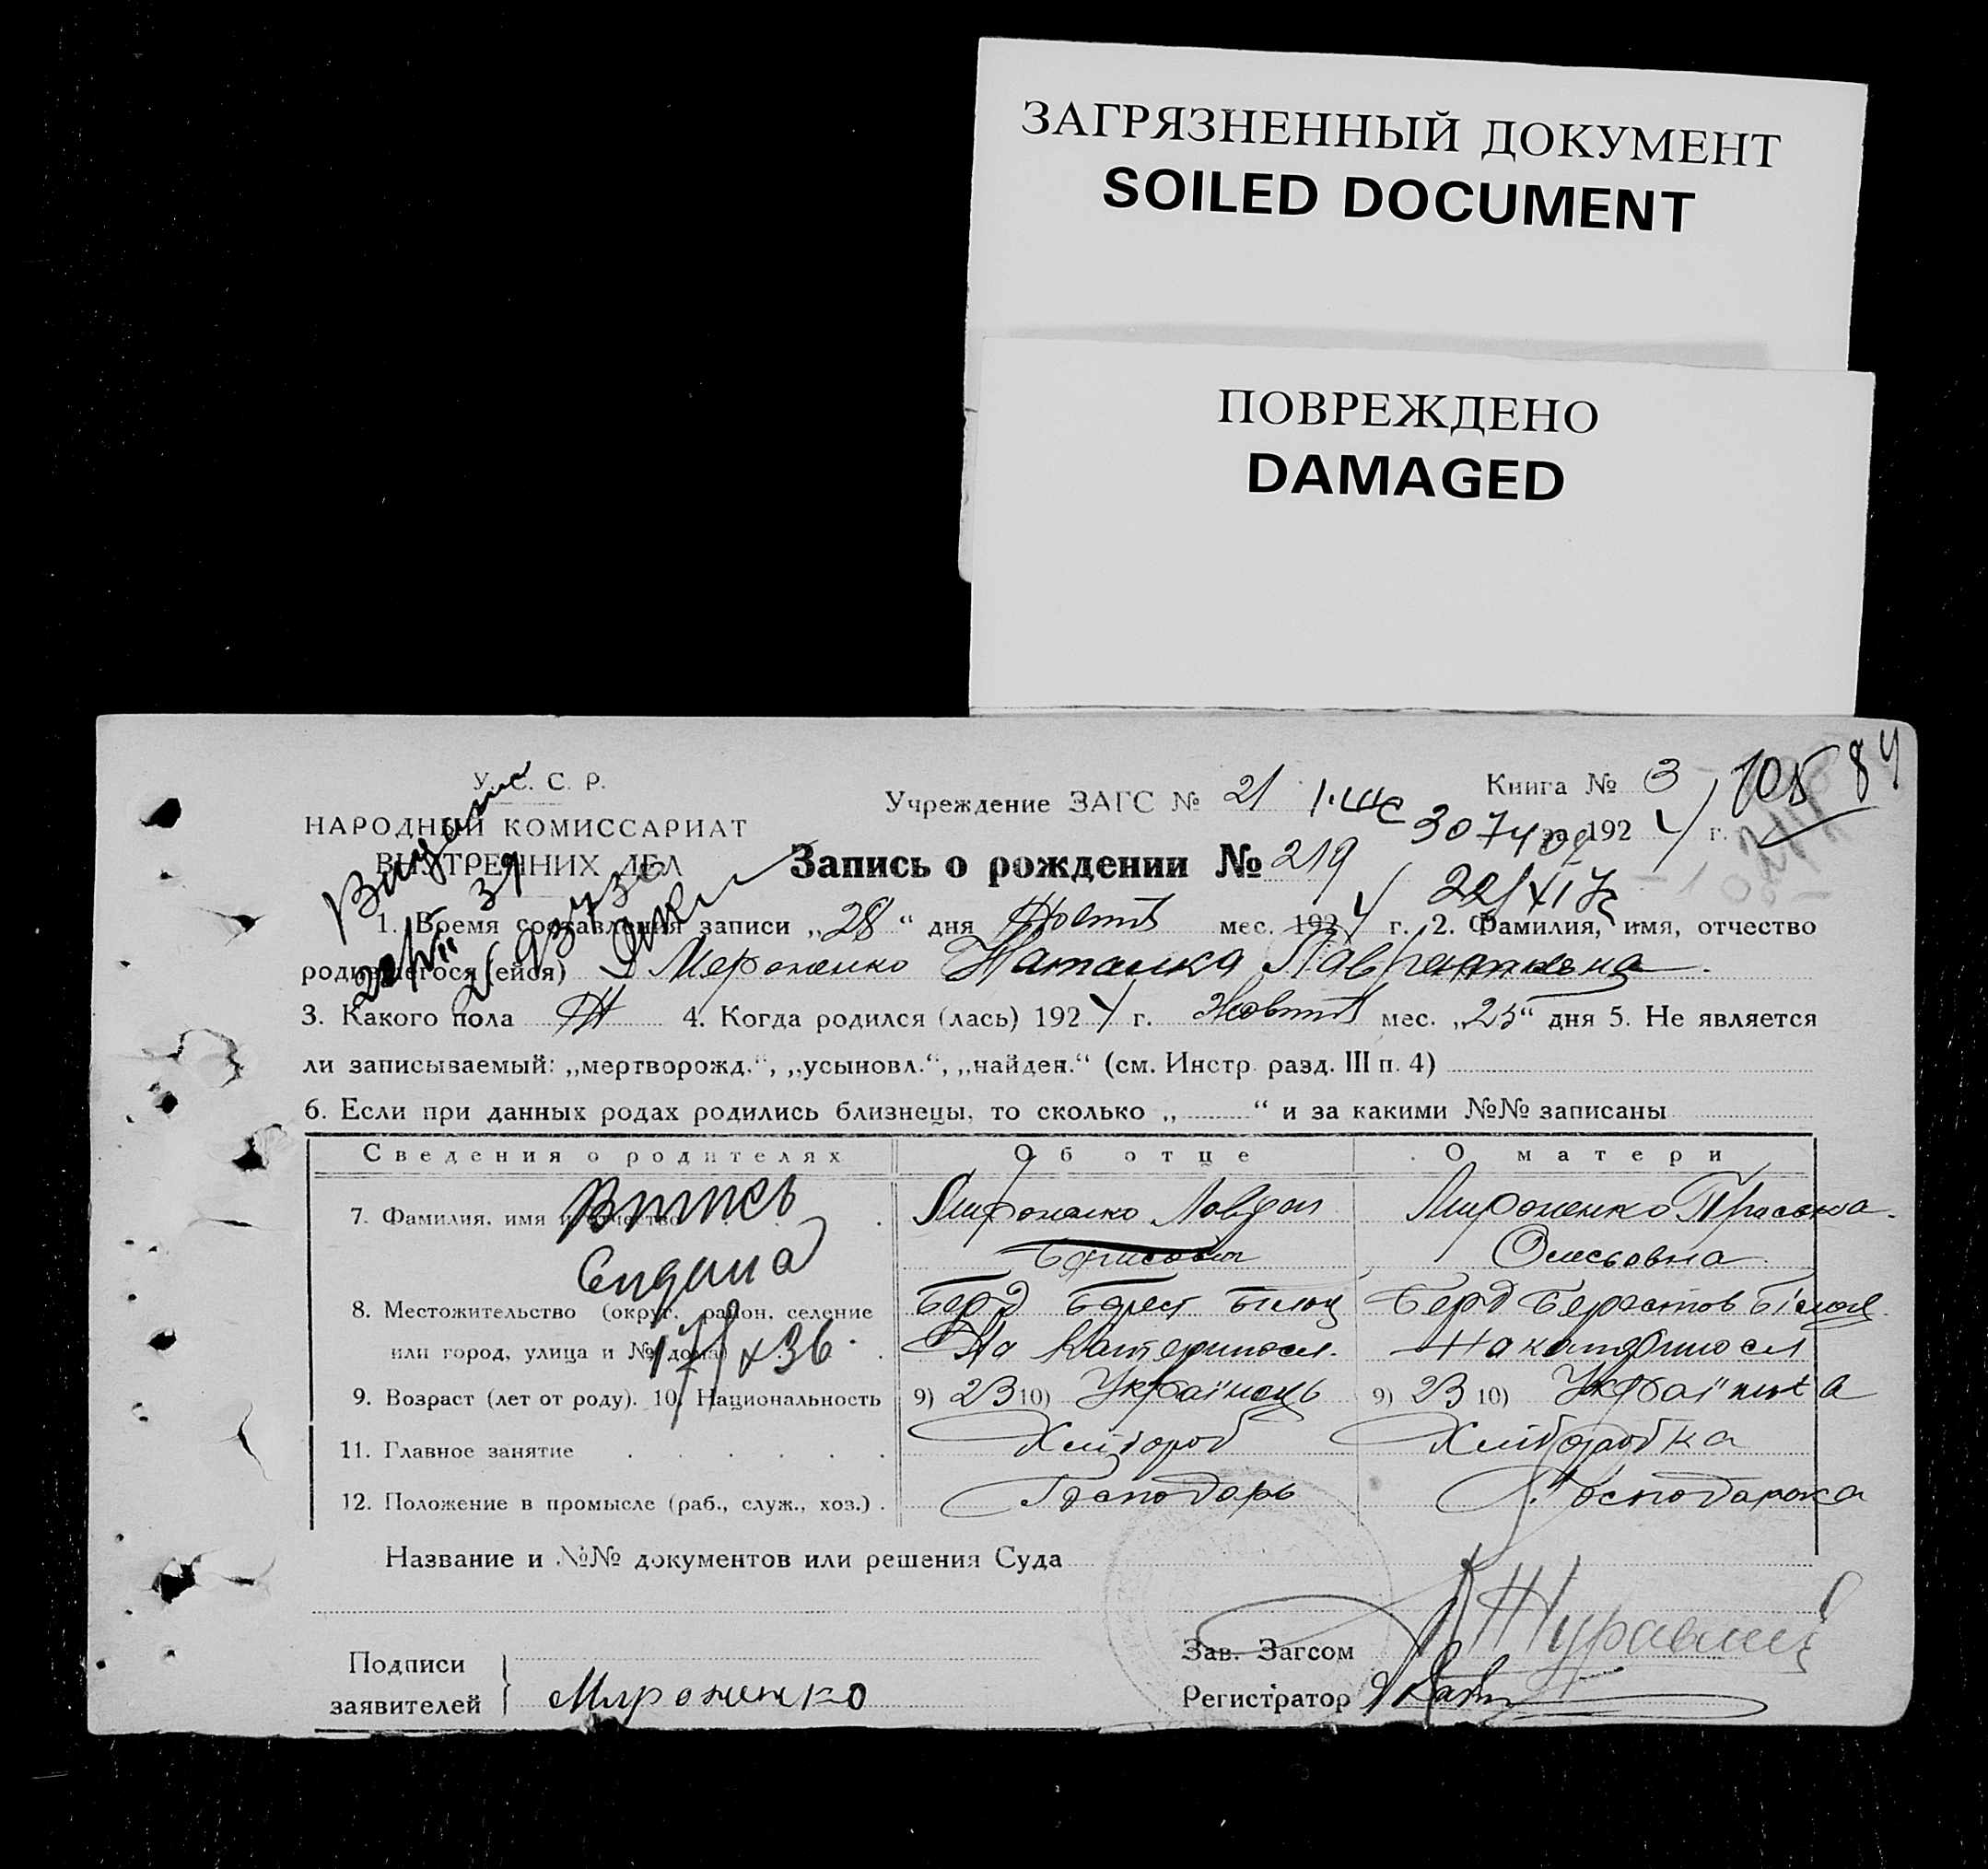 ЗАГРЯЗНЕННЫЙ ДОКУМЕНТ
SOILED DOCUMENT
ПОВРЕЖДЕНО
DAMAGED
У. С. С. Р.
НАРОДНЫЙ КОМИССАРИАТ
ВНУТРЕННИХ ДЕЛ
Учреждение ЗАГС № 21
Книга № 3
105 84
307402 1924 г.
Запись о рождении № 219
1. Время составления записи „28“ дня Жовтн мес. 1924 г. 2. Фамилия, имя, отчество
родившегося (ейся) Мероненко Наталка Лаврентьевна
3. Какого пола Ж 4. Когда родился (лась) 1924 г. Жовтн мес. „25“ дня 5. Не является
ли записываемый: „мертворожд.“, „усыновл.“, „найден.“ (см. Инстр. разд. III п. 4)
6. Если при данных родах родились близнецы, то сколько „ “ и за какими №№ записаны
Сведения о родителях Об отце О матери
7. Фамилия, имя и отчество Мироненко Мироненко
Борисович
8. Местожительство (округ, район, селение Берд Берест Білоц Берд Берестов Білоц
или город, улица и № дома) На Катериносл. На катериносл
9. Возраст (лет от роду). 10. Национальность 9) 23 10) Українець 9) 23 10) Українка
11. Главное занятие Хлібороб Хліборобка
12. Положение в промысле (раб., служ., хоз.) Господарь Господарка
Название и №№ документов или решения Суда
Подписи
заявителей Мироненко
Зав. Загсом
Регистратор